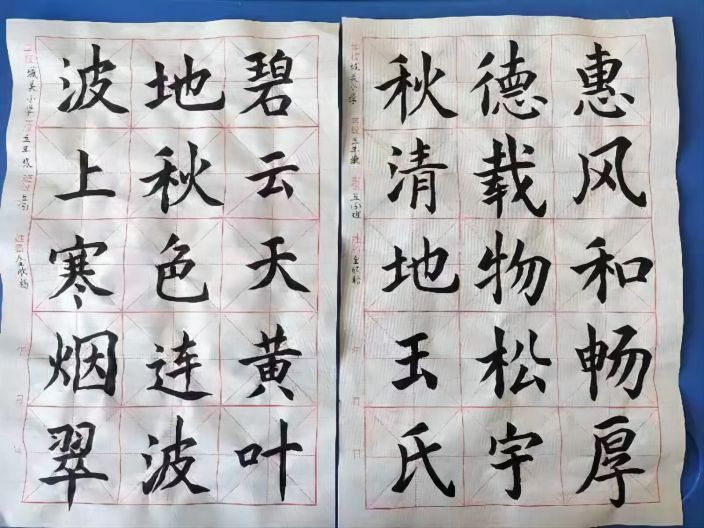 惠风和畅厚
德载物松宇
秋清地玉氏
城关小学 五年级 五(5)班
碧云天黄叶
地秋色连波
波上寒烟翠
城关小学 五年级 五(5)